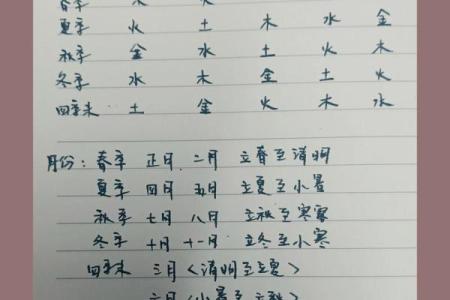 夏季 火 土 木 水 金
秋季 金 水 土 火 木
冬季 水 木 金 土 火
四季末 土 金 火 木 水
月份：春季 正月 二月 立春至清明
夏季 四月 五月 立夏至小暑
秋季 七月 八月 立秋至寒露
冬季 十月 十一月 立冬至小寒
四季末 三月〈清明至立夏〉